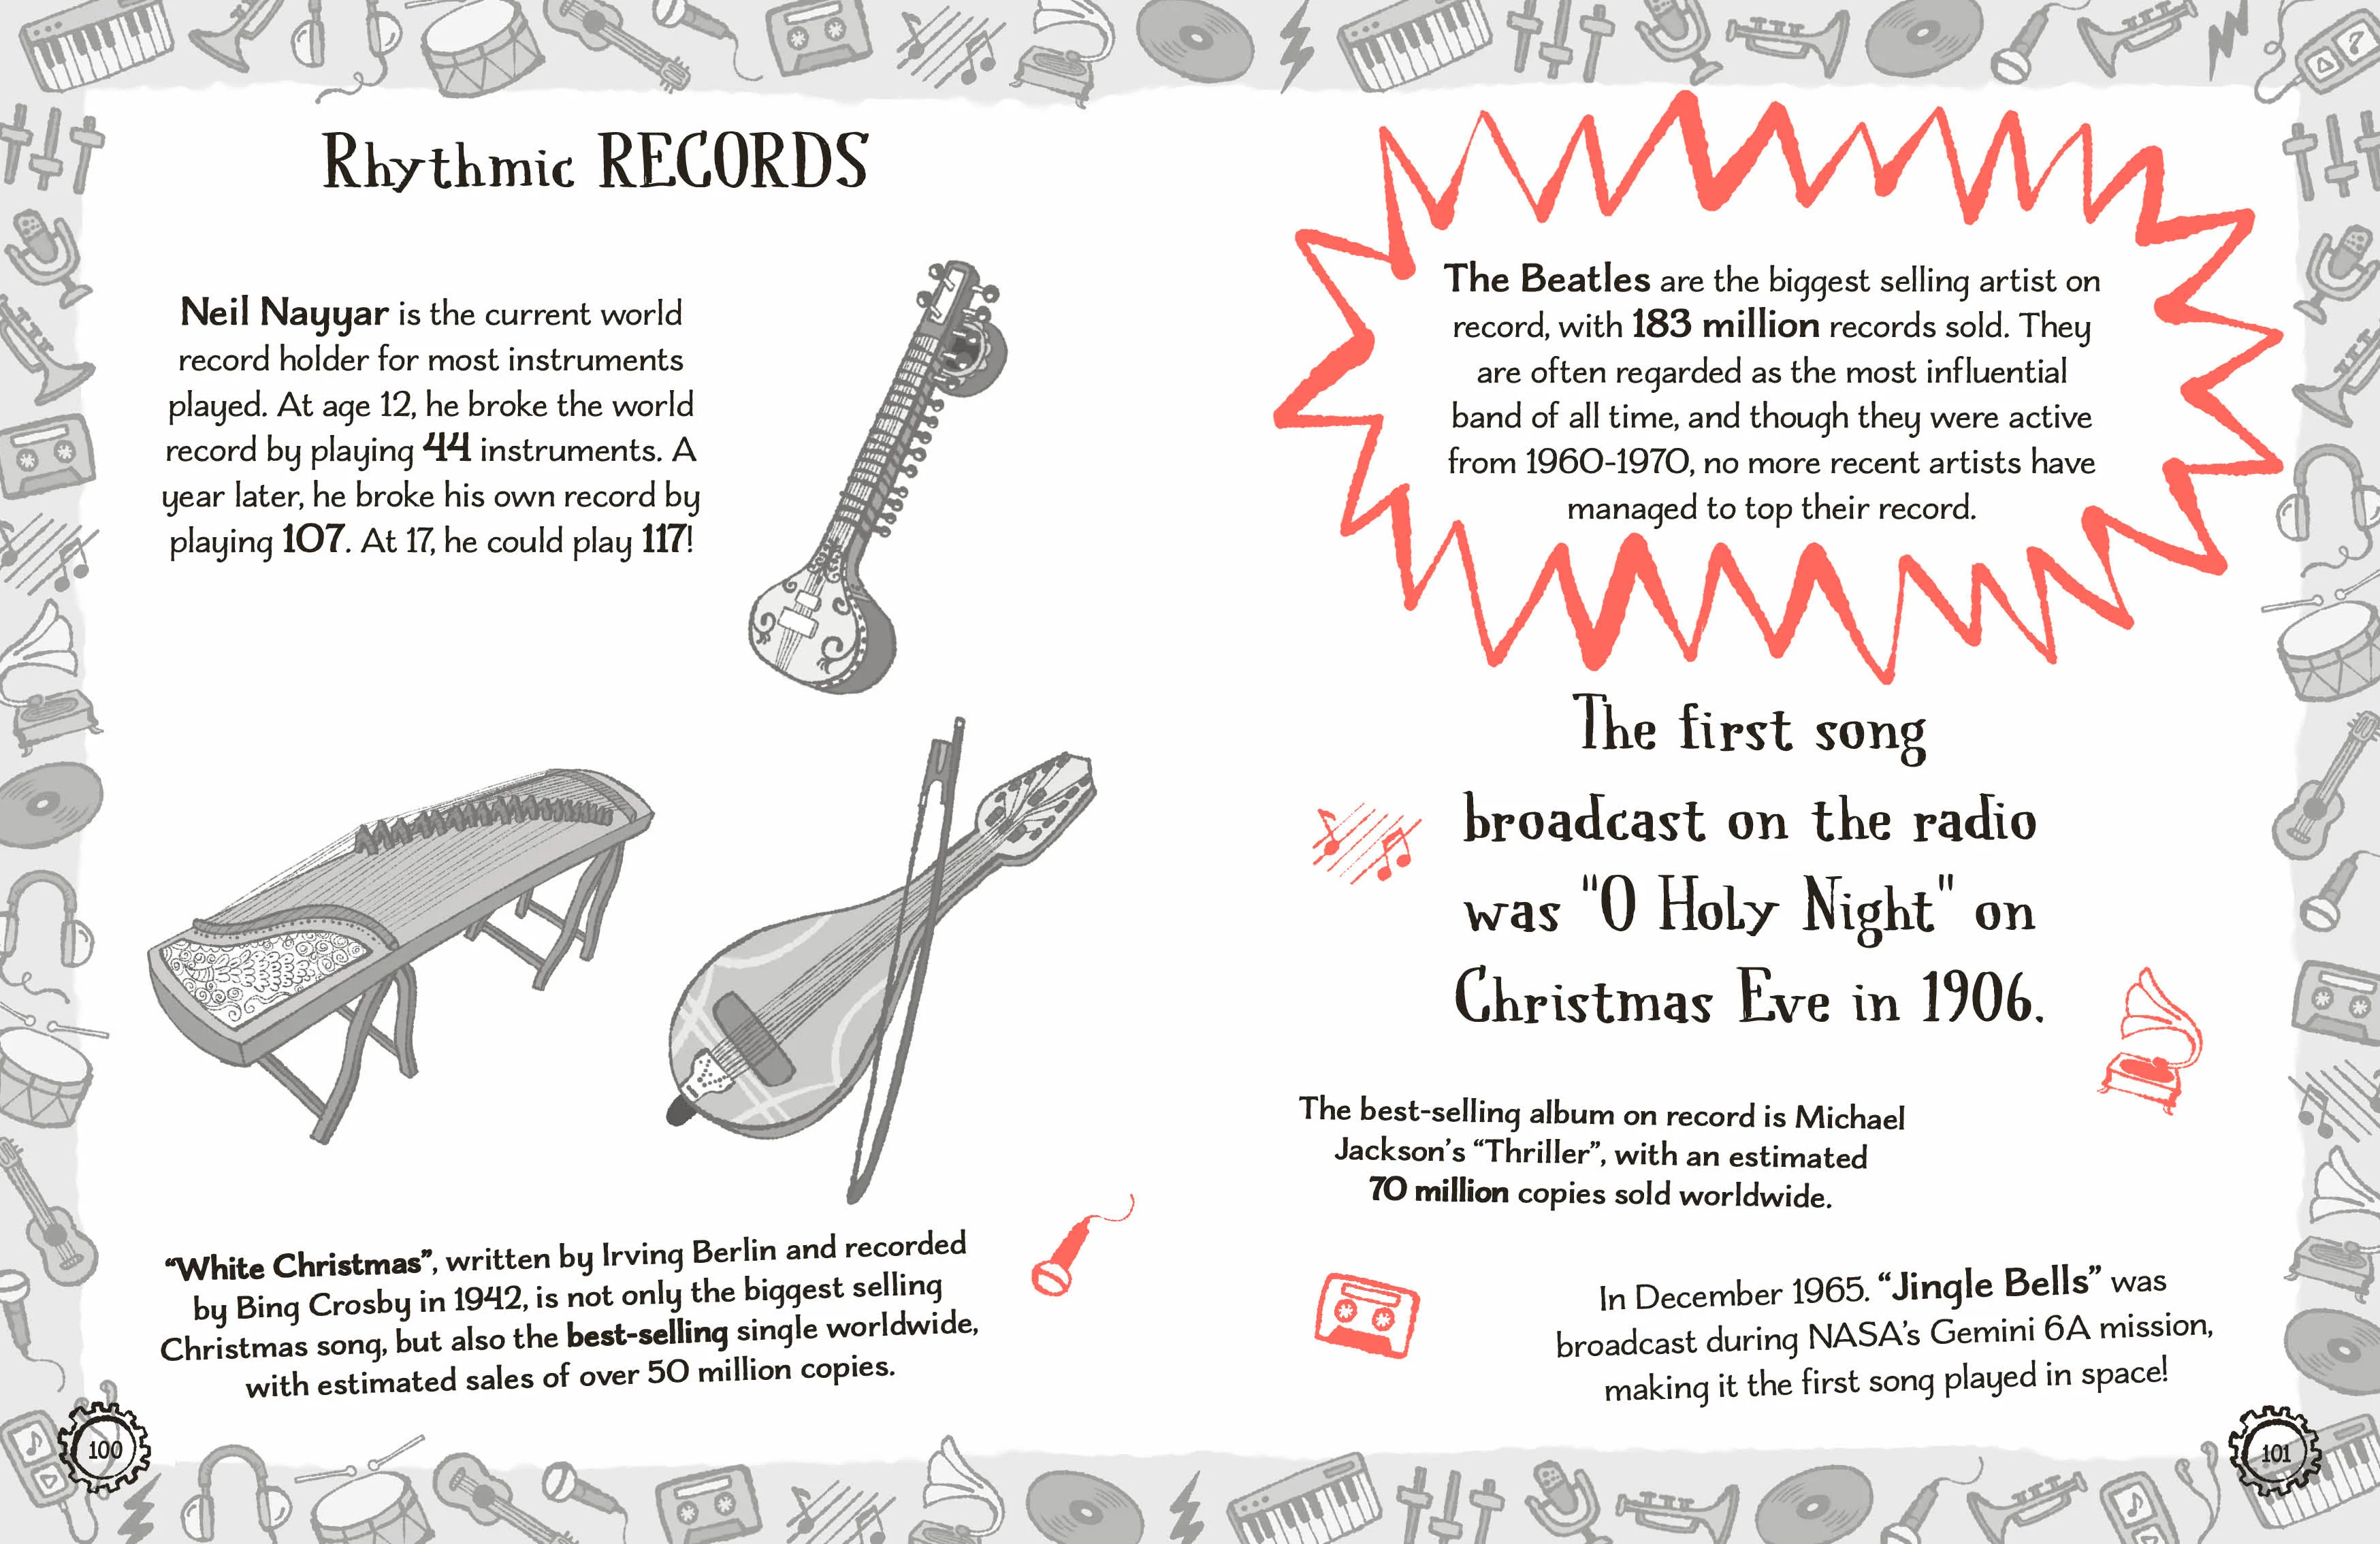 Rhythmic RECORDS
Neil Nayyar is the current world
record holder for most instruments
played. At age 12, he broke the world
record by playing 44 instruments. A
year later, he broke his own record by
playing 107. At 17, he could play 117!
“White Christmas”, written by Irving Berlin and recorded
by Bing Crosby in 1942, is not only the biggest selling
Christmas song, but also the best-selling single worldwide,
with estimated sales of over 50 million copies.
100
The Beatles are the biggest selling artist on
record, with 183 million records sold. They
are often regarded as the most influential
band of all time, and though they were active
from 1960-1970, no more recent artists have
managed to top their record.
The first song
broadcast on the radio
was "O Holy Night" on
Christmas Eve in 1906.
The best-selling album on record is Michael
Jackson’s “Thriller”, with an estimated
70 million copies sold worldwide.
In December 1965. “Jingle Bells” was
broadcast during NASA’s Gemini 6A mission,
making it the first song played in space!
101